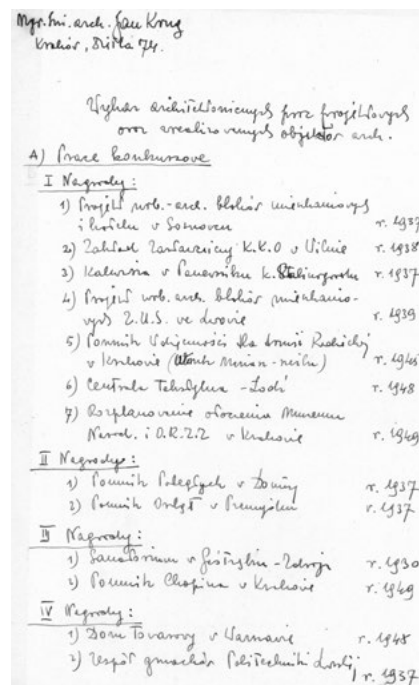 Mgr. inż. arch. Jan Krug
Kraków, Dietla 74.
Wykaz architektonicznych prac projektowych
oraz zrealizowanych objektów arch.
A) Prace konkursowe
I Nagrody:
1) Projekt urb.-arch. bloków mieszkaniowych
i hotelu w Sosnowcu r. 1937
2) Zakład Zastawniczy K.K.O w Wilnie r. 1938
3) w k. r. 1937
4) Projekt urb. arch. bloków mieszkanio-
wych Z.U.S. we Lwowie r. 1939
5) Pomnik Wdzięczności dla Armii Radzieckiej
w Krakowie r. 1945
6) Centrala Tekstylna - Łódź r. 1948
7) Rozplanowanie otoczenia Muzeum
Narod. i O.R.Z.Z w Krakowie r. 1949
II Nagrody:
1) Pomnik Poległych w r. 1937
2) Pomnik Orląt w Przemyślu r. 1937
III Nagrody:
1) Sanatorium w - Zdroju r. 1930
2) Pomnik Chopina w Krakowie r. 1949
IV Nagrody:
1) Dom Towarowy w Warszawie r. 1948
2) Zespół gmachów Politechniki Lwowskiej
r. 1937